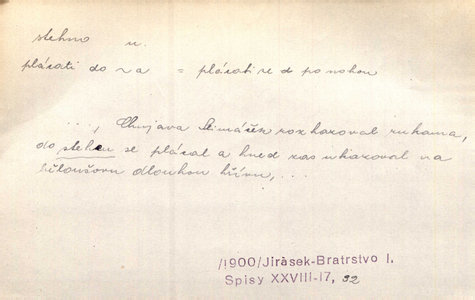 stehno n.
plácati do ~a = plácati se d po nohou
..., Chujava Šimášek rozhazoval rukama,
do stehen se plácal a hned zas ukazoval na
běloušovu dlouhou hřívu, ...
/1900/Jirásek-Bratrstvo I.
Spisy XXVIII-17, 32